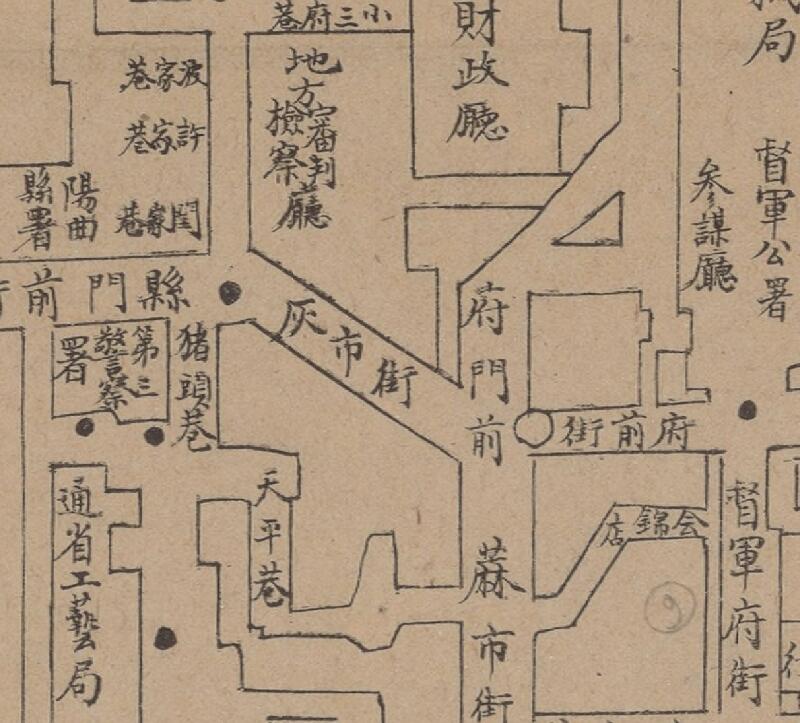 小三府巷
財政廳
波家巷
許家巷
閻家巷
地方審判廳
檢察
陽曲
縣署
參謀廳
督軍公署
局
縣門前
府門前
灰市街
第三
警察
署
猪頭巷
府前街
天平巷
通省工藝局
会錦店
督軍府街
蔴市街
街